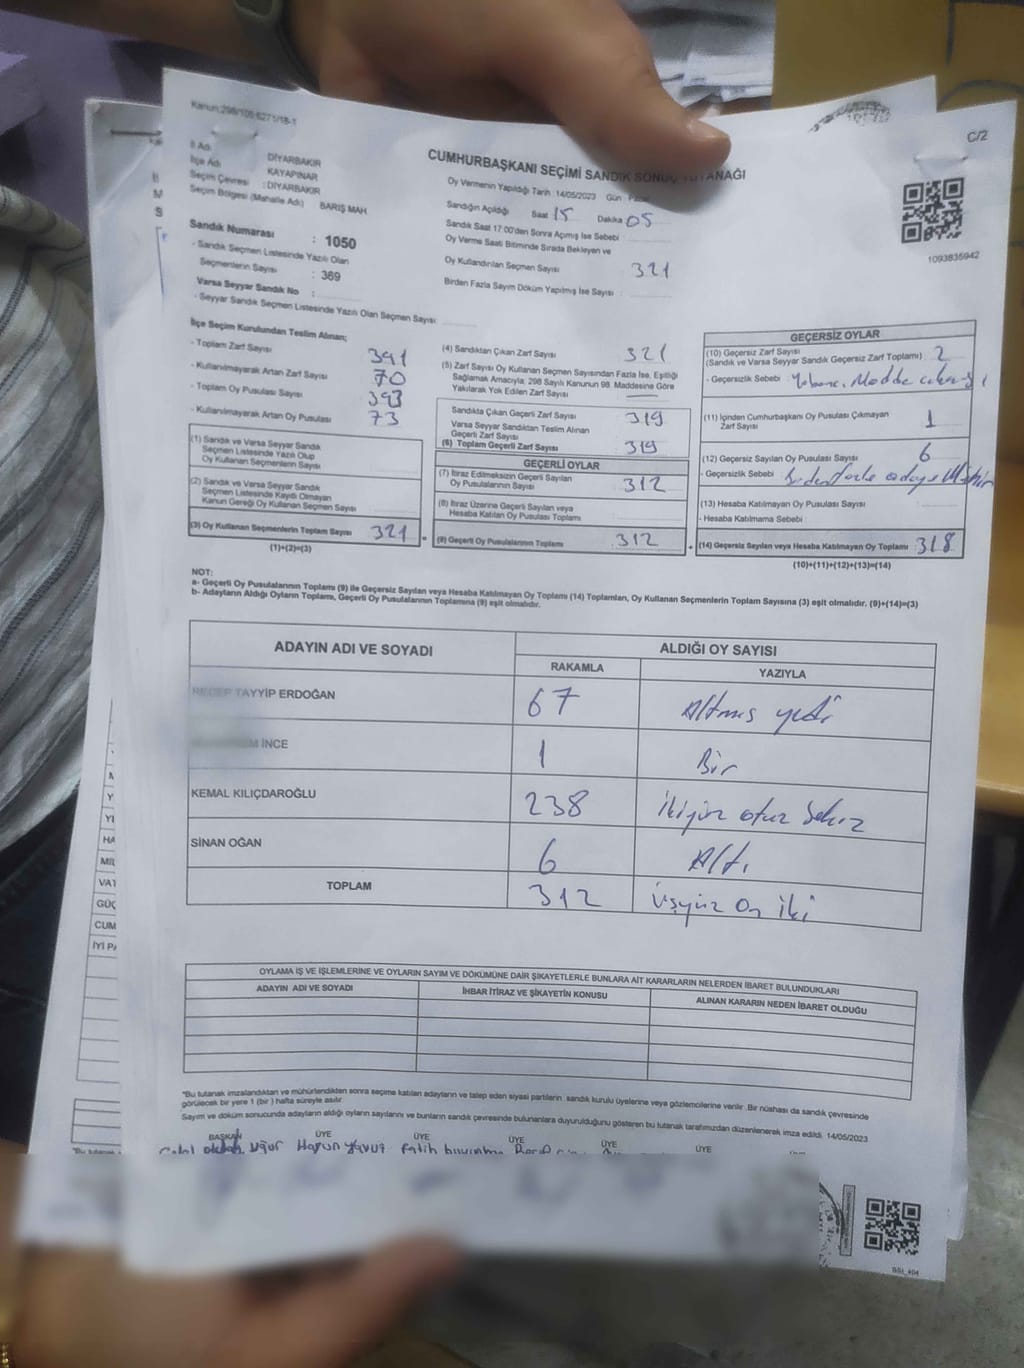 Kanun:298/105 6271/18-1
C/2
İl Adı DİYARBAKIR
İlçe Adı KAYAPINAR
Seçim Çevresi : DİYARBAKIR
Seçim Bölgesi (Mahalle Adı) BARIŞ MAH
Sandık Numarası : 1050
- Sandık Seçmen Listesinde Yazılı Olan
Seçmenlerin Sayısı : 369
Varsa Seyyar Sandık No :
- Seyyar Sandık Seçmen Listesinde Yazılı Olan Seçmen Sayısı
CUMHURBAŞKANI SEÇİMİ SANDIK SONUÇ TUTANAĞI
Oy Vermenin Yapıldığı Tarih :14/05/2023 Gün :
Sandığın Açıldığı Saat 15 Dakika 05
Sandık Saat 17:00'den Sonra Açımış İse Sebebi :
Oy Verme Saati Bitiminde Sırada Bekleyen ve
Oy Kullandırılan Seçmen Sayısı 321
Birden Fazla Sayım Döküm Yapılmış İse Sayısı :
1093835942
İlçe Seçim Kurulundan Teslim Alınan;
- Toplam Zarf Sayısı 391
- Kullanılmayarak Artan Zarf Sayısı 70
- Toplam Oy Pusulası Sayısı 393
- Kullanılmayarak Artan Oy Pusulası 73
(1) Sandık ve Varsa Seyyar Sandık
Seçmen Listesinde Yazılı Olup
Oy Kullanan Seçmenlerin Sayısı
(2) Sandık ve Varsa Seyyar Sandık
Seçmen Listesinde Kaydı Olmayan
Kanun Gereği Oy Kullanan Seçmen Sayısı
(3) Oy Kullanan Seçmenlerin Toplam Sayısı 321
(1)+(2)=(3)
(4) Sandıktan Çıkan Zarf Sayısı 321
(5) Zarf Sayısı Oy Kullanan Seçmen Sayısından Fazla İse, Eşitliği
Sağlamak Amacıyla, 298 Sayılı Kanunun 98. Maddesine Göre
Yakılarak Yok Edilen Zarf Sayısı
Sandıkta Çıkan Geçerli Zarf Sayısı 319
Varsa Seyyar Sandıktan Teslim Alınan
Geçerli Zarf Sayısı
(6) Toplam Geçerli Zarf Sayısı 319
GEÇERLİ OYLAR
(7) İtiraz Edilmeksizin Geçerli Sayılan
Oy Pusulalarının Sayısı 312
(8) İtiraz Üzerine Geçerli Sayılan veya
Hesaba Katılan Oy Pusulası Toplamı
(9) Geçerli Oy Pusulalarının Toplamı 312
GEÇERSİZ OYLAR
(10) Geçersiz Zarf Sayısı 2
(Sandık ve Varsa Seyyar Sandık Geçersiz Zarf Toplamı)
- Geçersizlik Sebebi Madde
(11) İçinden Cumhurbaşkanı Oy Pusulası Çıkmayan
Zarf Sayısı 1
(12) Geçersiz Sayılan Oy Pusulası Sayısı 6
- Geçersizlik Sebebi Birden fazla adaya
(13) Hesaba Katılmayan Oy Pusulası Sayısı
- Hesaba Katılmama Sebebi
(14) Geçersiz Sayılan veya Hesaba Katılmayan Oy Toplamı 318
(10)+(11)+(12)+(13)=(14)
NOT:
a- Geçerli Oy Pusulalarının Toplamı (9) ile Geçersiz Sayılan veya Hesaba Katılmayan Oy Toplamı (14) Toplamları, Oy Kullanan Seçmenlerin Toplam Sayısına (3) eşit olmalıdır. (9)+(14)=(3)
b- Adayların Aldığı Oyların Toplamı, Geçerli Oy Pusulalarının Toplamına (9) eşit olmalıdır.
ADAYIN ADI VE SOYADI ALDIĞI OY SAYISI
RAKAMLA YAZIYLA
RECEP TAYYİP ERDOĞAN 67 Altmış yedi
İNCE 1 Bir
KEMAL KILIÇDAROĞLU 238 ikiyüz otuz sekiz
SİNAN OĞAN 6 Altı
TOPLAM 312 üçyüz on iki
OYLAMA İŞ VE İŞLEMLERİNE VE OYLARIN SAYIM VE DÖKÜMÜNE DAİR ŞİKAYETLERLE BUNLARA AİT KARARLARIN NELERDEN İBARET BULUNDUKLARI
ADAYIN ADI VE SOYADI İHBAR İTİRAZ VE ŞİKAYETİN KONUSU ALINAN KARARIN NEDEN İBARET OLDUĞU
*Bu tutanak imzalandıktan ve mühürlendikten sonra seçime katılan adayların ve talep eden siyasi partilerin sandık kurulu üyelerine veya gözlemcilerine verilir. Bir nüshası da sandık çevresinde
görülecek bir yere 1 (bir) hafta süreyle asılır.
Sayım ve döküm sonucunda adayların aldığı oyların sayılarını ve bunların sandık çevresinde bulunanlara duyurulduğunu gösteren bu tutanak tarafımızdan düzenlenerek imza edildi. 14/05/2023
BAŞKAN ÜYE ÜYE ÜYE ÜYE ÜYE
Uğur Harun Yavuz Fatih
HA
MİL
VAT
GÜÇ
CUM
İYİ PA